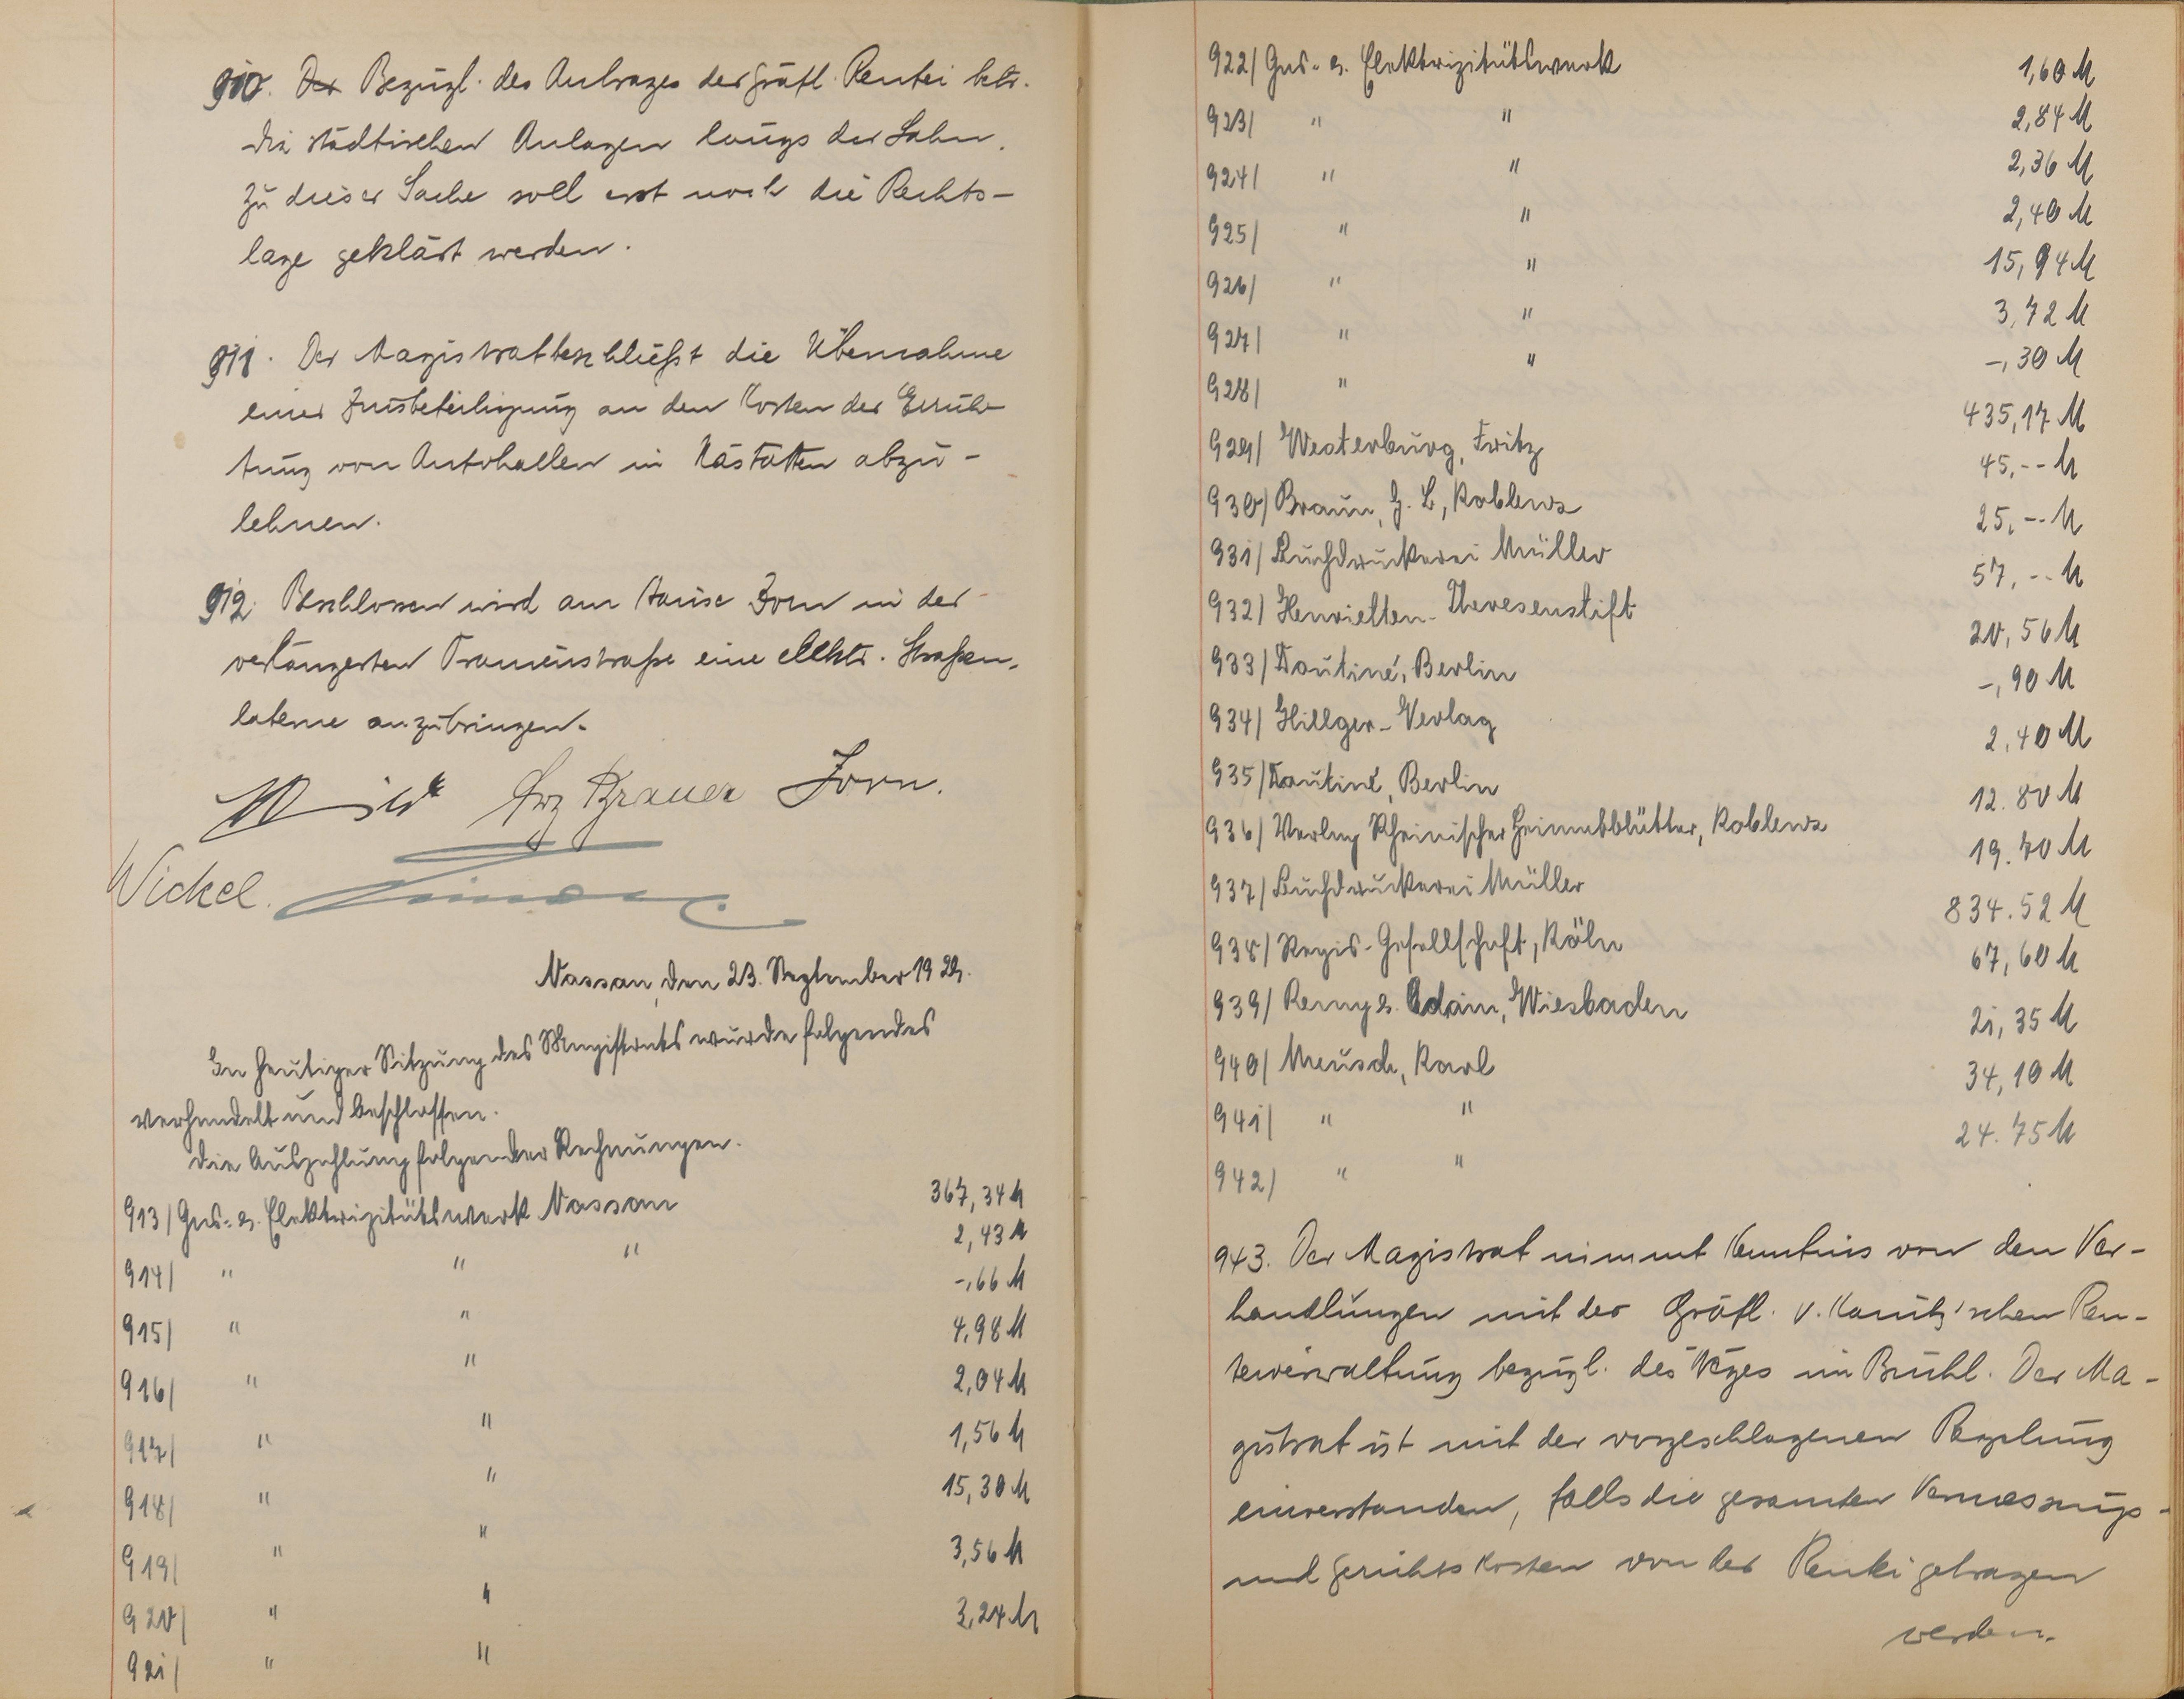 910. Der Bezügl. des Antrages der Gräfl. Rentei betr.
die städtischen Anlagen längs der Lahn.
Zu dieser Sache soll erst noch die Rechts-
lage geklärt werden.
911. Der Magistrat beschließt die Übernahme
einer Zinsbeteiligung an den Kosten der Errich-
tung von Autohallen in Nastätten abzu-
lehnen.
912. Beschlossen wird am Hause Zorn in der
verlängerten Straße eine elektr. Straßen-
laterne anzubringen.
Brauer Zorn.
Wickel.
Nassau, den 23. September 1929.
In heutiger Sitzung des Magistrats wurde folgendes
verhandelt und beschlossen.
die Auszahlung folgender Rechnungen.
913/ Gas- u. Elektrizitätswerk Nassau 367,34 M
914/ " " " 2,43 M
915/ " " -,66 M
916/ " " 4,98 M
917/ " " 2,04 M
918/ " " 1,56 M
919/ " " 15,30 M
920/ " " 3,56 M
921/ " " 3,24 M
922/ Gas- u. Elektrizitätswerk 1,60 M
923/ " " 2,84 M
924/ " " 2,36 M
925/ " " 2,40 M
926/ " " 15,94 M
927/ " " 3,72 M
928/ " " -,30 M
929/ Westerburg, Fritz 435,17 M
930/ Braun, Koblenz 45,-- M
931/ Buchdruckerei Müller 25,-- M
932/ Henrietten-Theresenstift 57,-- M
933/ Berlin 20,56 M
934/ Hillger-Verlag -,90 M
935/ Berlin 2,40 M
936/ Verlag Rheinischer Heimatblätter, Koblenz 12.80 M
937/ Buchdruckerei Müller 19.70 M
938/ Regis-Gesellschaft, Köln 834.52 M
939/ Remy u. Wiesbaden 67,60 M
940/ Meusch, Karl 21,35 M
941/ " " 34,10 M
942/ " " 24.75 M
943. Der Magistrat nimmt Kenntnis von den Ver-
handlungen mit der Gräfl. v. Kanitz'schen Ren-
teiverwaltung bezügl. des Weges im Brühl. Der Ma-
gistrat ist mit der vorgeschlagenen Regelung
einverstanden, falls die gesamten Vermessungs-
und Gerichtskosten von der Rentei getragen
werden.